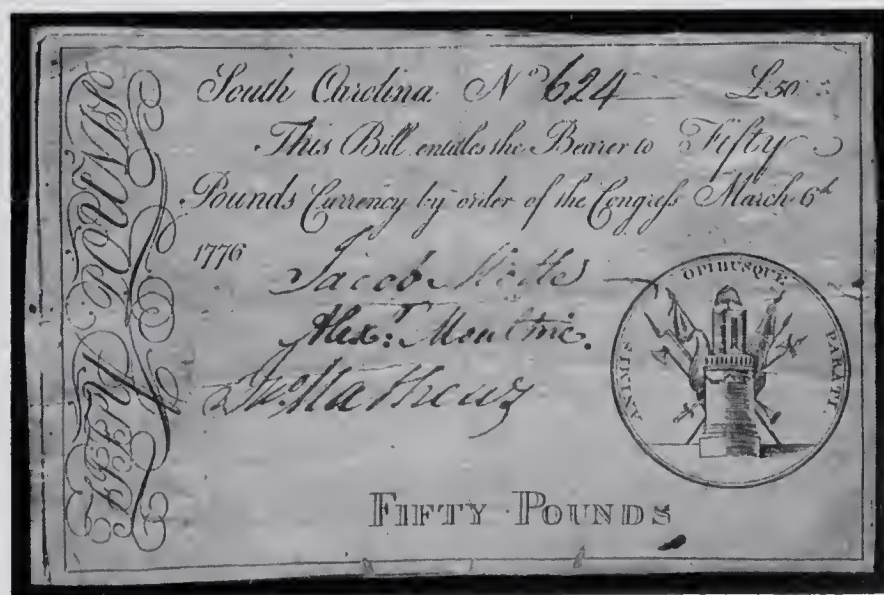 South Carolina N.o 624 £50
This Bill entitles the Bearer to Fifty
Pounds Currency by order of the Congress March 6th
1776
Jacob Motte
Alexr. Moultrie.
Jno. Mathews
ANIMIS OPIBUSQUE PARATI.
FIFTY POUNDS
FIFTY POUNDS